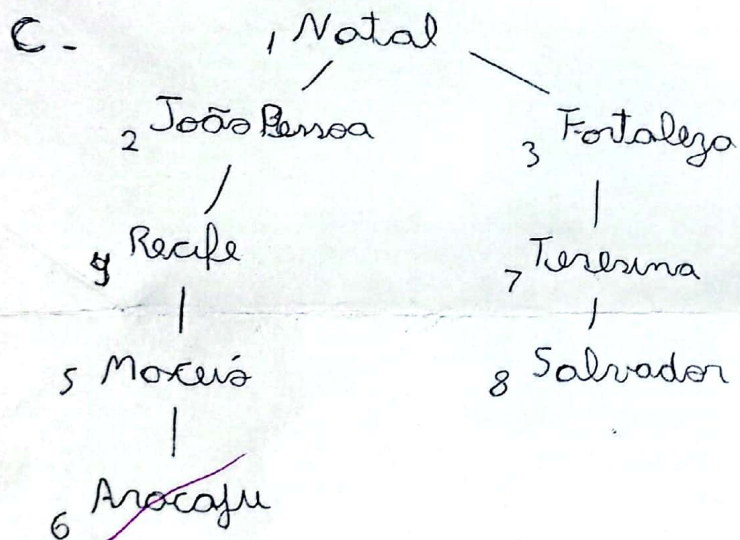 C - 1 Natal
2 João Pessoa 3 Fortaleza
4 Recife 7 Teresina
5 Maceió 8 Salvador
6 Aracaju